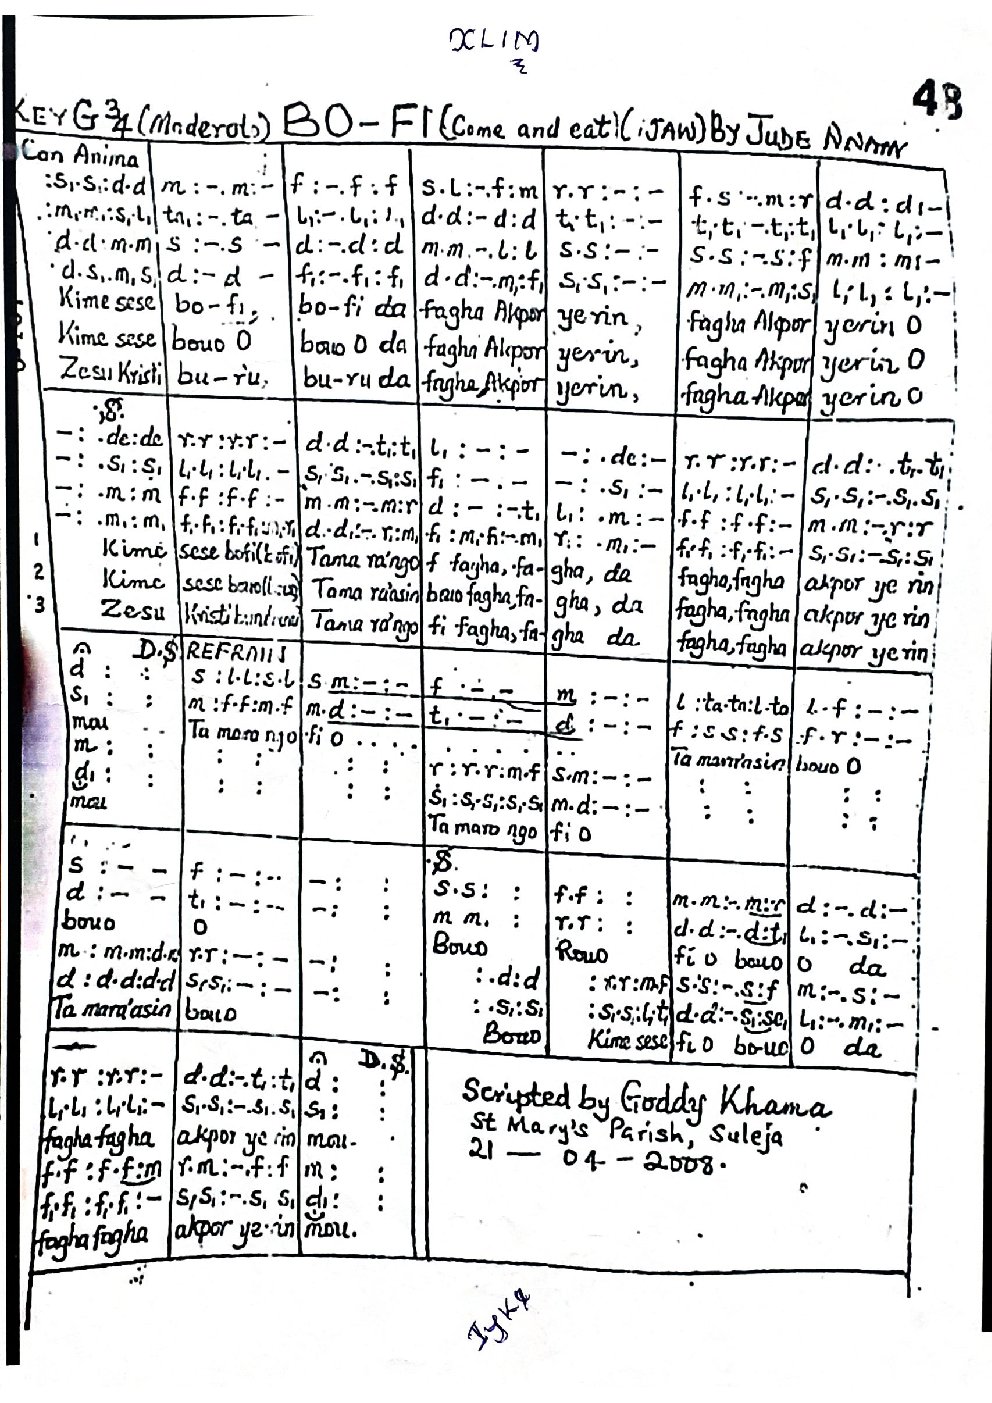 XLIM
48
KEY G 3/4 (Moderato) BO-FI (Come and eat) (IJAW) BY JUDE NNAM
Con Anima
:s₁.s₁:d.d m:-.m:- f:-.f:f s.l:-.f:m r.r:-:- f.s:-.m:r d.d:d:-
:m₁.m₁:s₁.l₁ ta₁:-.ta₁:- l₁:-.l₁:l₁ d.d:-.d:d t₁.t₁:-:- t₁.t₁:-.t₁:t₁ l₁.l₁:l₁:-
d.d:m.m s:-.s:- d:-.d:d m.m:-.l:l s.s:-:- s.s:-.s:f m.m:m:-
d.s₁:m₁.s₁ d:-.d:- f₁:-.f₁:f₁ d.d:-.m₁:f₁ s₁.s₁:-:- m.m₁:-.m₁:s₁ l₁.l₁:l₁:-
Kime sese bo-fi, bo-fi da fagha Akpor yerin, fagha Akpor yerin O
Kime sese bouo O bouo O da fagha Akpor yerin, fagha Akpor yerin O
Zesu Kristi bu-ru, bu-ru da fagha Akpor yerin, fagha Akpor yerin O
:S:
-: .de:de r.r:r.r:- d.d:-.t₁:t₁ l₁:-:- -: .de:- r.r:r.r:- d.d:-.t₁.t₁
-: .s₁:s₁ l₁.l₁:l₁.l₁:- s₁.s₁:-.s₁:s₁ f₁:-:- -: .s₁:- l₁.l₁:l₁.l₁:- s₁.s₁:-.s₁.s₁
-: .m:m f.f:f.f:- m.m:-.m:r d:-:-.t₁ l₁: .m:- f.f:f.f:- m.m:-.r:r
-: .m₁:m₁ f₁.f₁:f₁.f₁ d.d:-.r:m₁ f₁:m₁.f₁:-.m₁ r₁: .m₁:- f₁.f₁:f₁.f₁:- s₁.s₁:-.s₁:s₁
1 Kime sese bofi Tama ra'ngo f fagha, fa- gha, da fagha, fagha akpor ye rin
2 Kime sese Tama ra'asin bouo fagha, fa- gha, da fagha, fagha akpor ye rin
3 Zesu Kristi Tama ra'ngo fi fagha, fa- gha da fagha, fagha akpor ye rin
D.S REFRAIN
d : : s:l.l:s.l s.m:-:- f:-:- m:-:- l:ta.ta:l.ta l.f:-:-
s₁ : : m:f.f:m.f m.d:-:- t₁:-:- d:-:- f:s.s:f.s f.r:-:-
mou Ta mara ngo fi O Ta mara'asin bouo O
m: : : : : : r:r.r:m.f s.m:-:- : : : :
d₁: : : : : : s₁:s₁.s₁:s₁.s₁ m.d:-:- : : : :
mou Ta mara ngo fi O
:S:
s:-- f:-:- -: : s.s: : f.f: : m.m:-.m:r d:-.d:-
d:-- t₁:-:- -: : m.m: : r.r: : d.d:-.d:t₁ l₁:-.s₁:-
bouo O Bouo Bouo fi O bouo O da
m:m.m:d.r r.r:-:- -: : :.d:d :r.r:m.f s.s:-.s:f m:-.s:-
d:d.d:d.d s₁.s₁:-:- -: : :.s₁:s₁ :s₁.s₁:l₁.t₁ d.d:-.s₁:se₁ l₁:-.m₁:-
Ta mara'asin bouo Bouo Kime sese fi O bouo O da
D.S.
r.r:r.r:- d.d:-.t₁:t₁ d: :
l₁.l₁:l₁.l₁:- s₁.s₁:-.s₁.s₁ s₁: :
fagha fagha akpor ye rin mou.
f.f:f.f:m r.m:-.f:f m: :
f₁.f₁:f₁.f₁:- s₁.s₁:-.s₁.s₁ d₁: :
fagha fagha akpor ye-rin mou.
Scripted by Goddy Khama
St Mary's Parish, Suleja
21 — 04 - 2008.